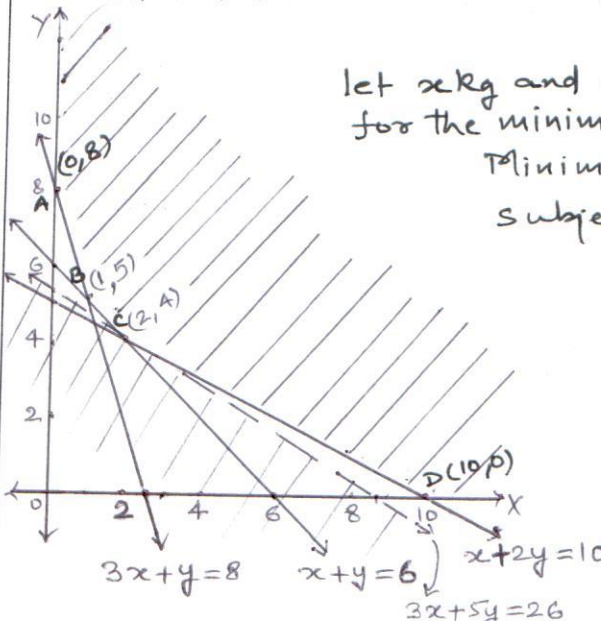 Y
let x kg and
for the minim
Minim
Subje
10
(0,8)
8
A
6
B (1,5)
C(2,4)
4
2
D(10,0)
0 2 4 6 8 10 X
3x+y=8 x+y=6 x+2y=10
3x+5y=26